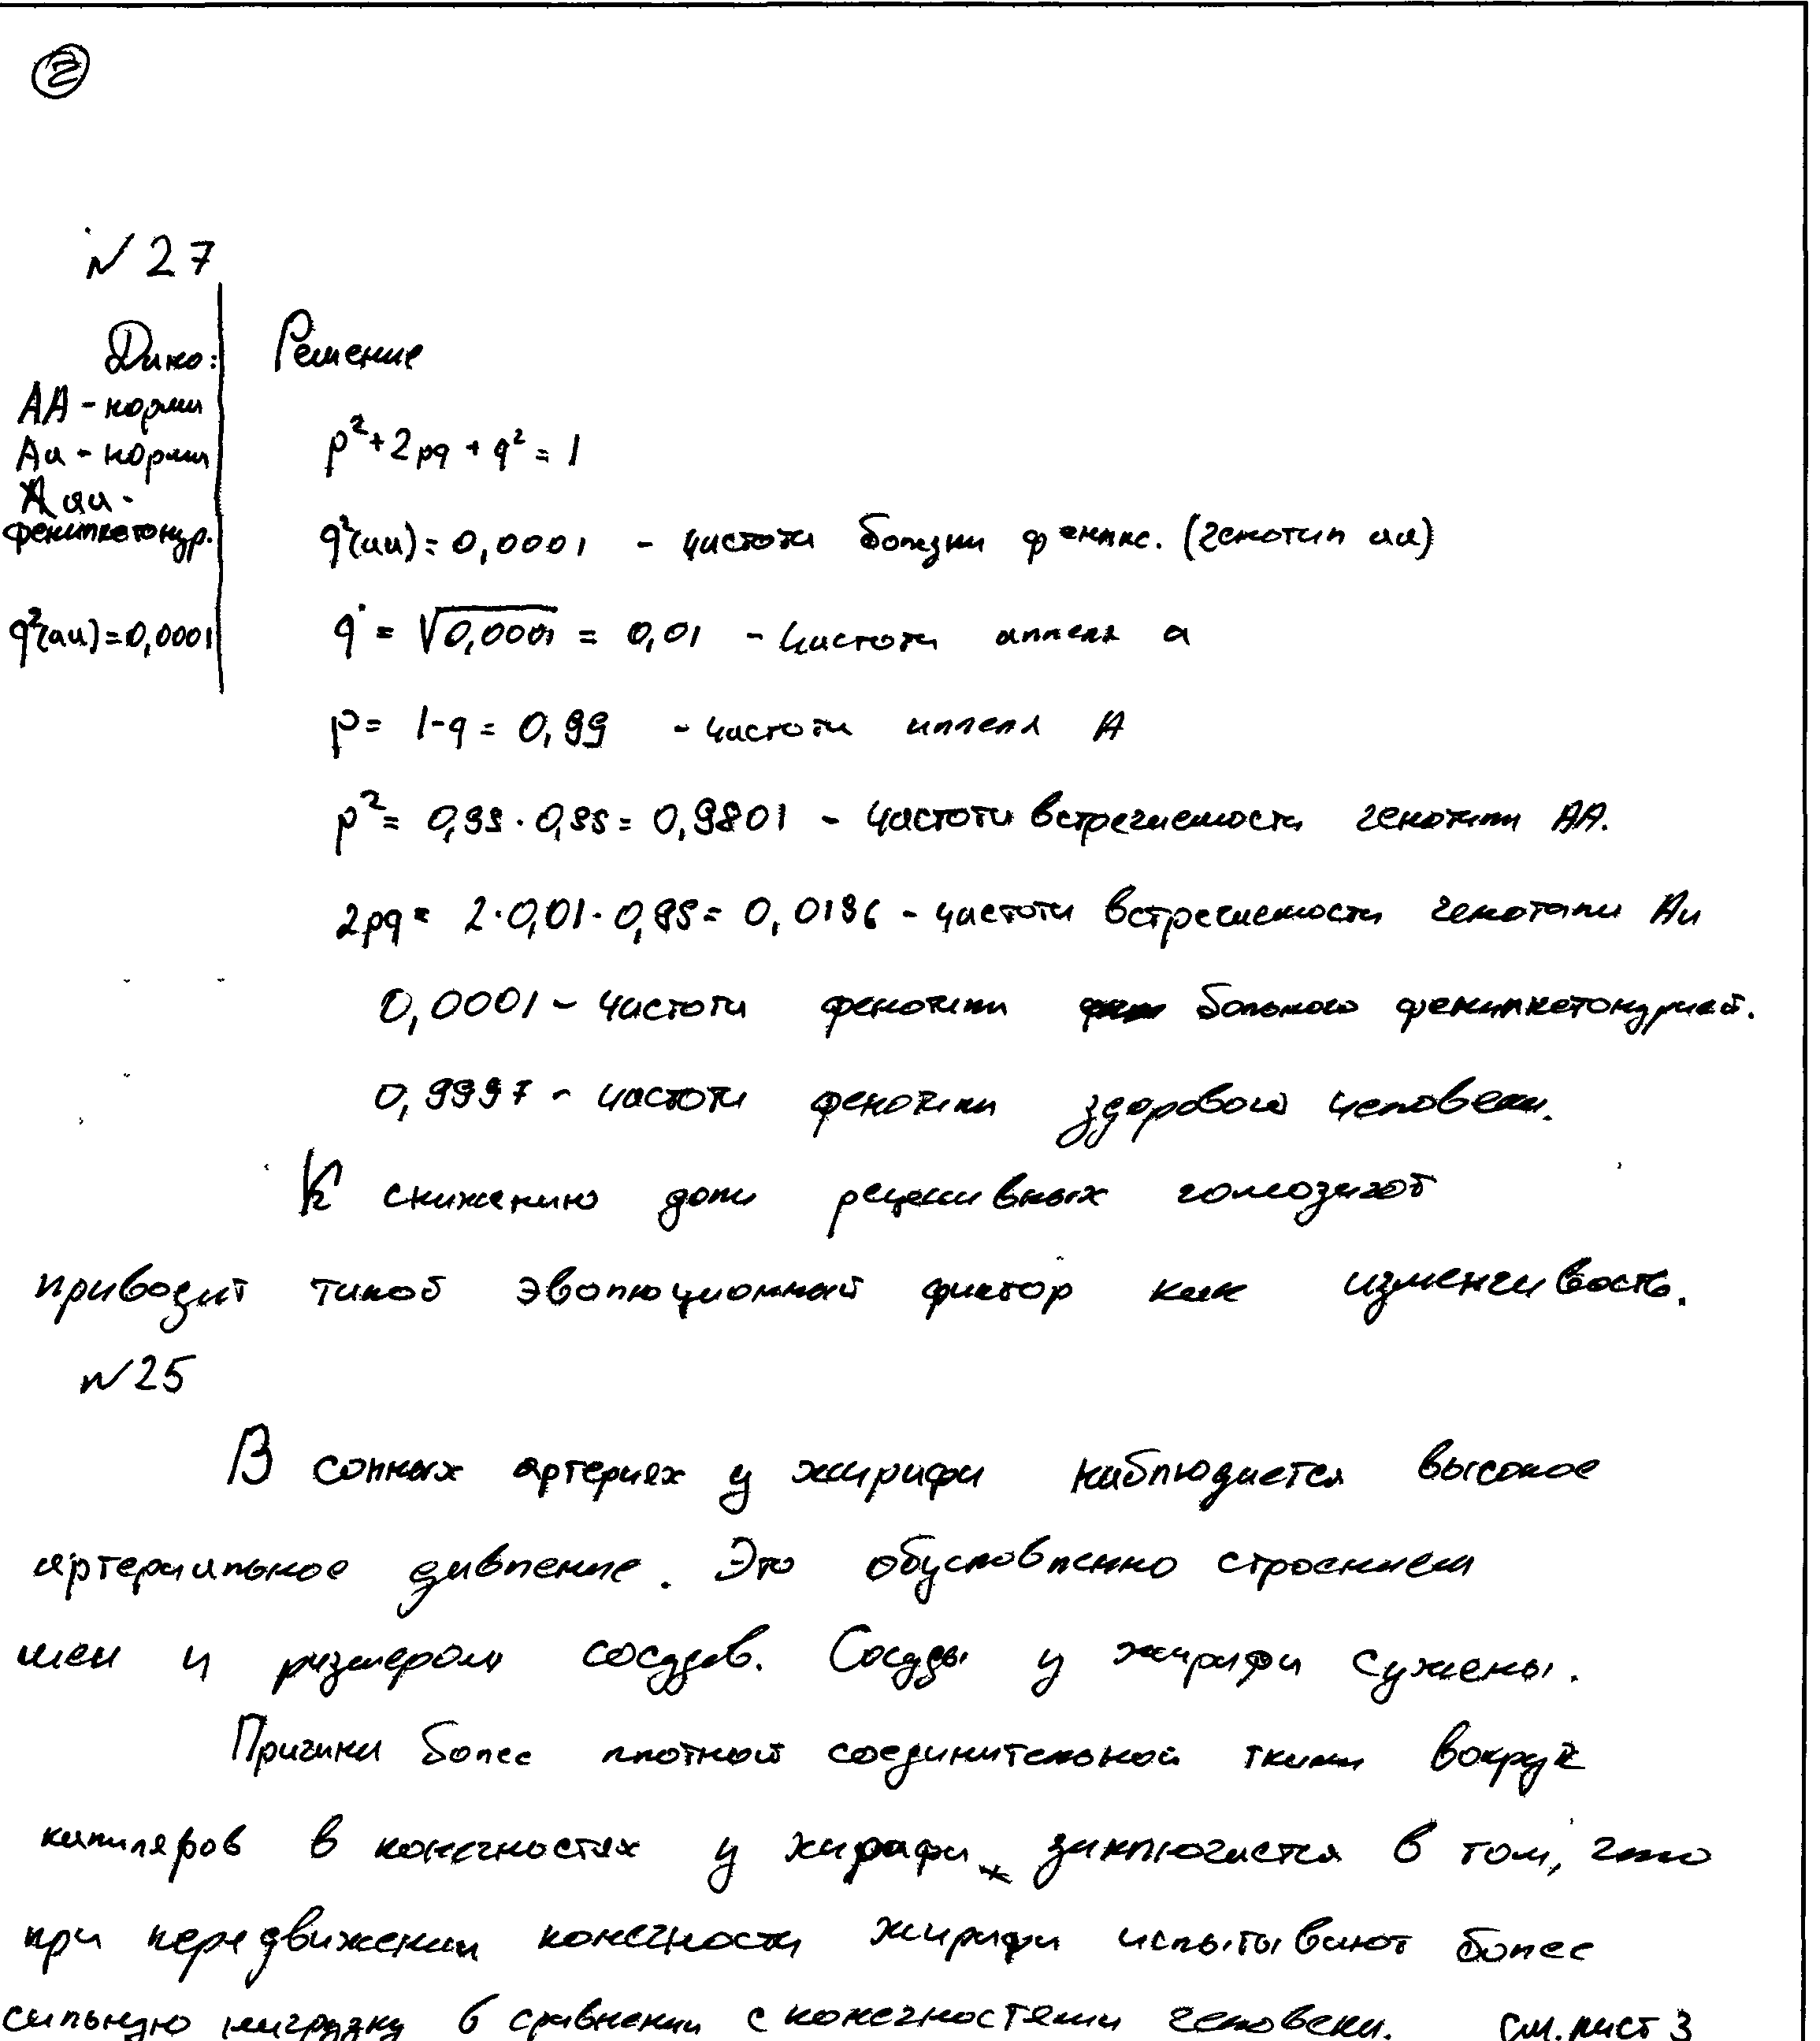 2
№27
Дано:
АА - норма
Аа - норма
аа -
фенилкетонур.
q²(аа) = 0,0001
Решение
p² + 2pq + q² = 1
q²(аа) = 0,0001 - частота болезни фенилк. (генотип аа)
q = √0,0001 = 0,01 - частота аллеля а
p = 1-q = 0,99 - частота аллеля А
p² = 0,99 · 0,99 = 0,9801 - частота встречаемости генотипа АА.
2pq = 2 · 0,01 · 0,99 = 0,0196 - частота встречаемости генотапа Аа
0,0001 - частота фенотипа больного фенилкетонурией.
0,9997 - частота фенотипа здорового человека.
К снижению доли рецессивных гомозигот
приводит такой эволюционный фактор как изменчивость.
№25
В сонных артериях у жирафа наблюдается высокое
артериальное давление. Это обусловленно строением
шеи и размером сосудов. Сосуды у жирафа сужены.
Причина более плотной соединительной ткани вокруг
капиляров в конечностях у жирафа заключается в том, что
при передвижении конечности жирафа испытывают более
сильную нагрузку в сравнении с конечностями человека. см. лист 3